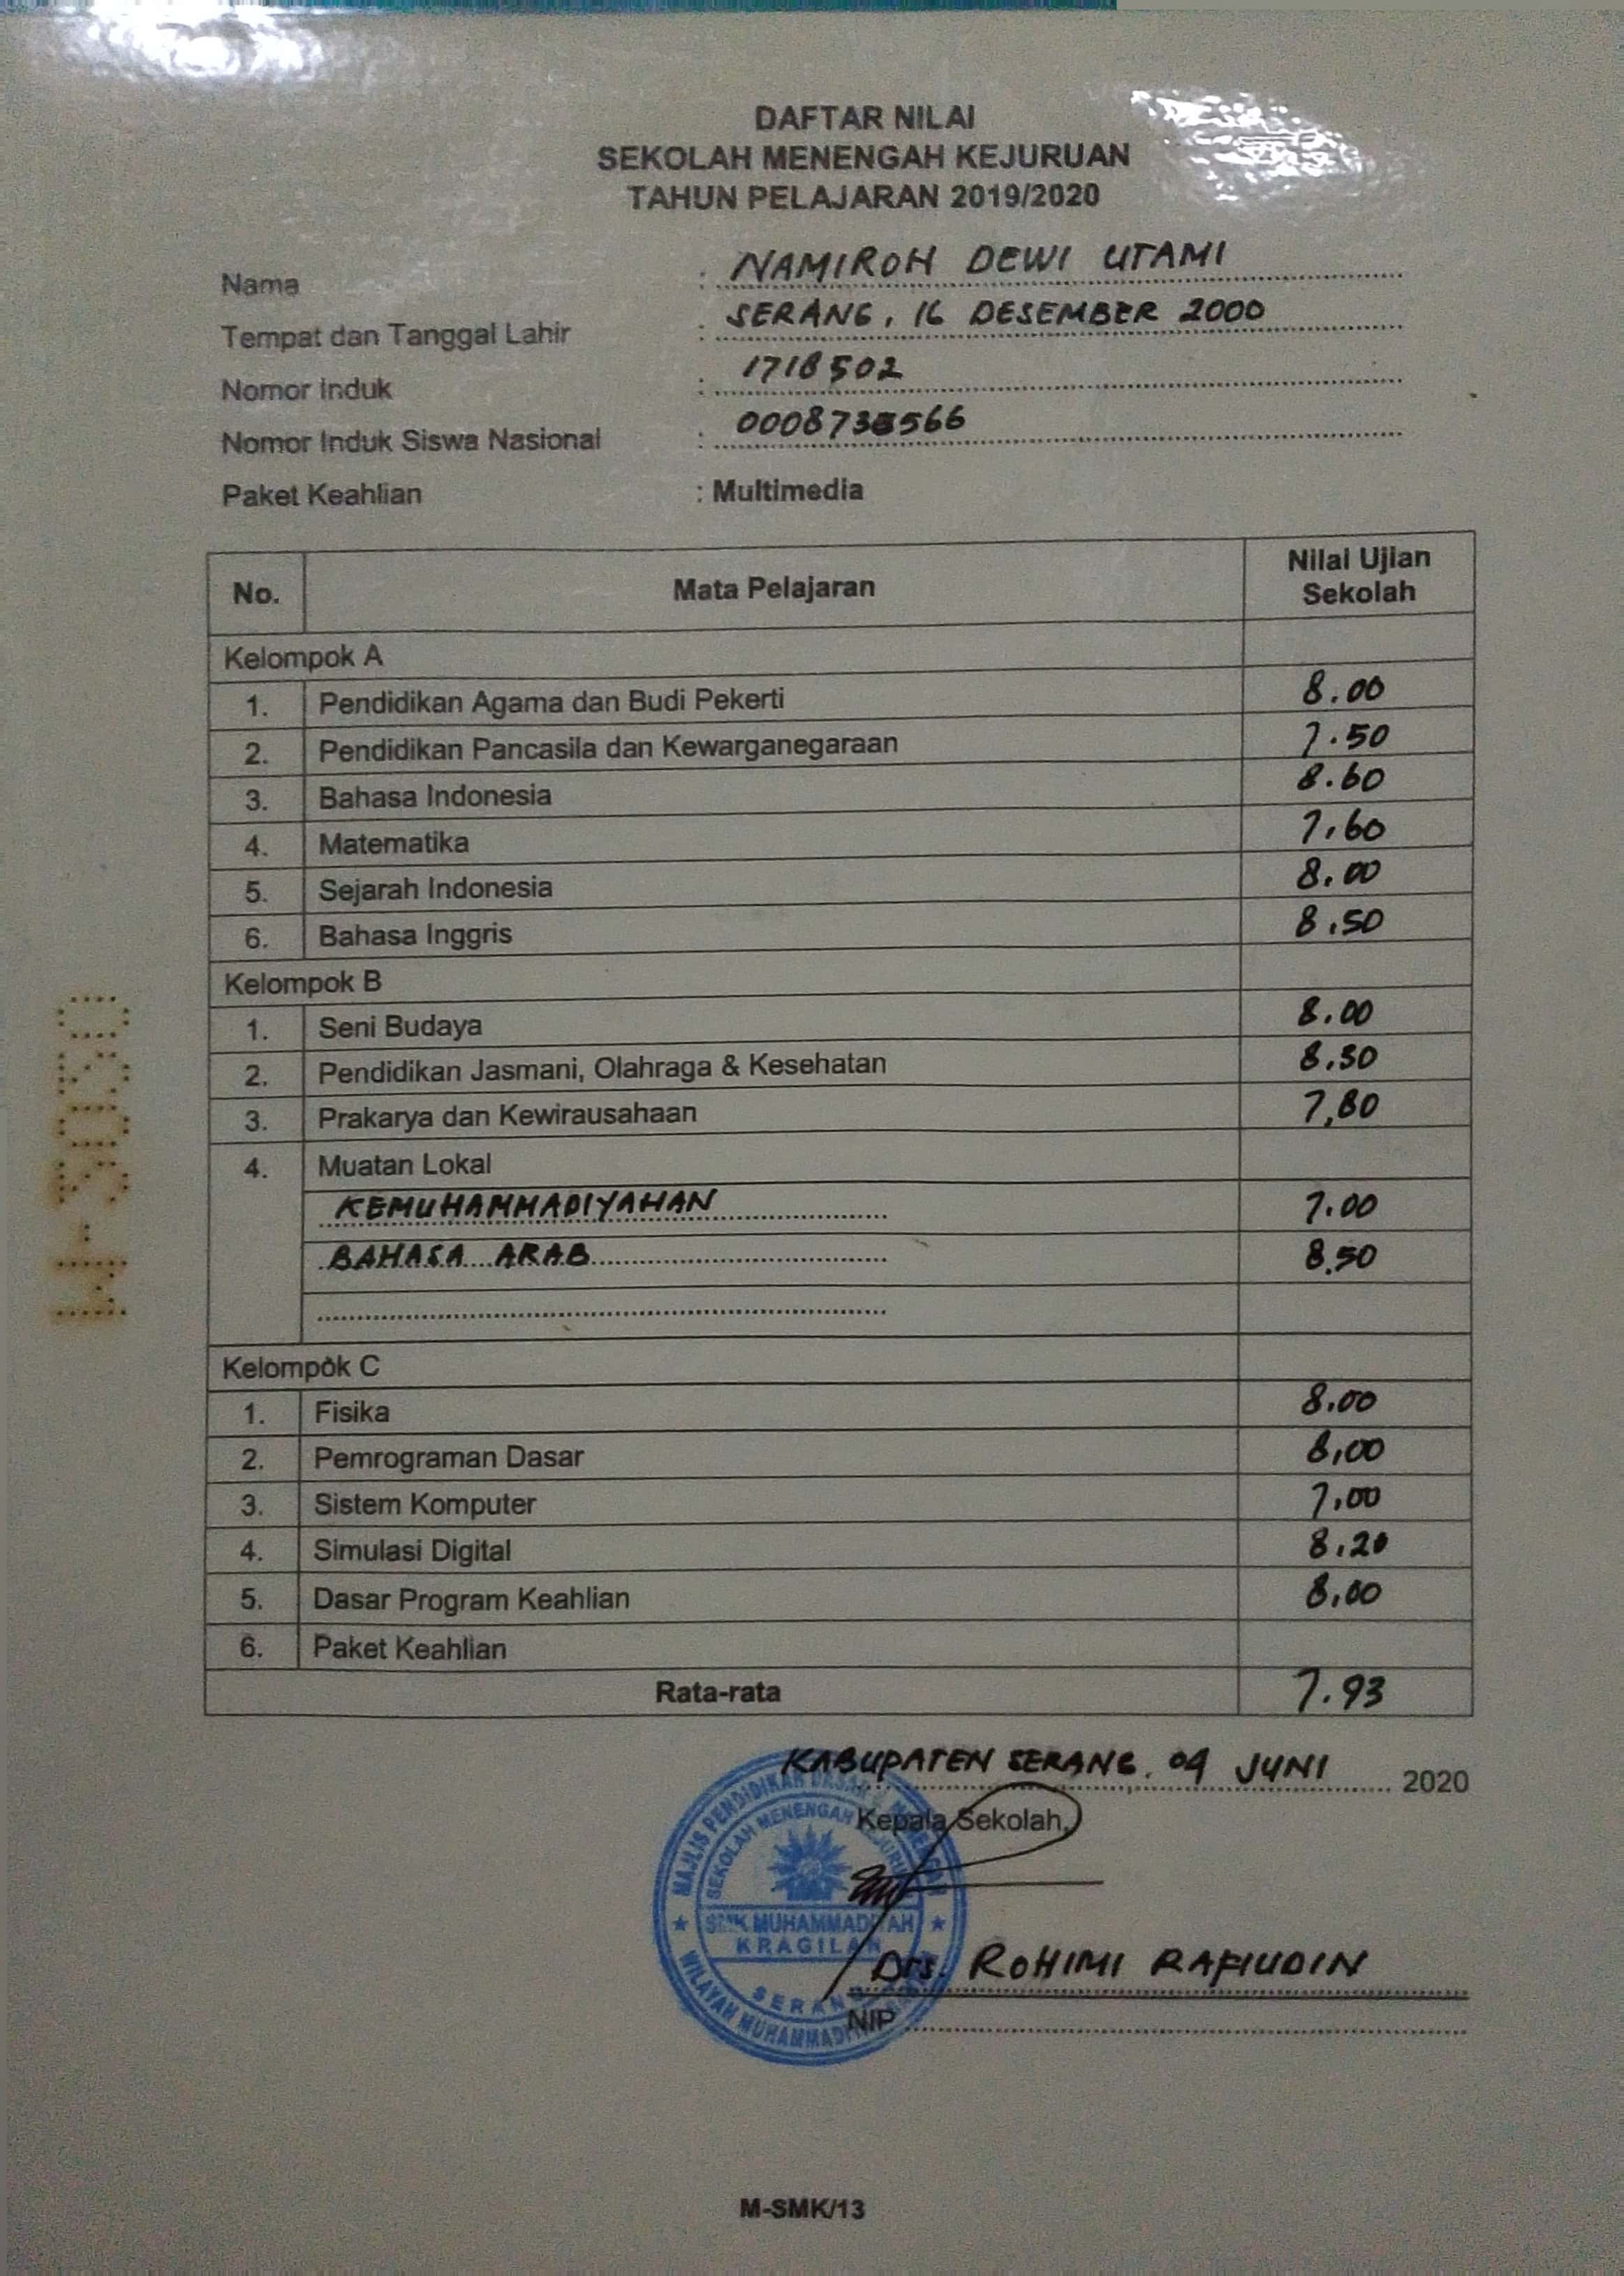 DAFTAR NILAI
SEKOLAH MENENGAH KEJURUAN
TAHUN PELAJARAN 2019/2020
Nama : NAMIROH DEWI UTAMI
Tempat dan Tanggal Lahir : SERANG, 16 DESEMBER 2000
Nomor Induk : 1718502
Nomor Induk Siswa Nasional :
Paket Keahlian : Multimedia
No. Mata Pelajaran Nilai Ujian Sekolah
Kelompok A
1. Pendidikan Agama dan Budi Pekerti 8.00
2. Pendidikan Pancasila dan Kewarganegaraan 7.50
3. Bahasa Indonesia 8.60
4. Matematika 7,60
5. Sejarah Indonesia 8,00
6. Bahasa Inggris 8,50
Kelompok B
1. Seni Budaya 8.00
2. Pendidikan Jasmani, Olahraga & Kesehatan
3. Prakarya dan Kewirausahaan 7,80
4. Muatan Lokal
KEMUHAMMADIYAHAN 7.00
BAHASA ARAB 8.50
Kelompok C
1. Fisika 8,00
2. Pemrograman Dasar 8,00
3. Sistem Komputer 7,00
4. Simulasi Digital 8,20
5. Dasar Program Keahlian 8,00
6. Paket Keahlian
Rata-rata 7.93
KABUPATEN SERANG, 04 JUNI 2020
Kepala Sekolah,
MAJLIS PENDIDIKAN DASAR
SEKOLAH MENENGAH
SMK MUHAMMADIYAH
KRAGILAN
SERANG
WILAYAH MUHAMMADIYAH
Drs. ROHIMI RAFIUDIN
NIP
M-SMK/13